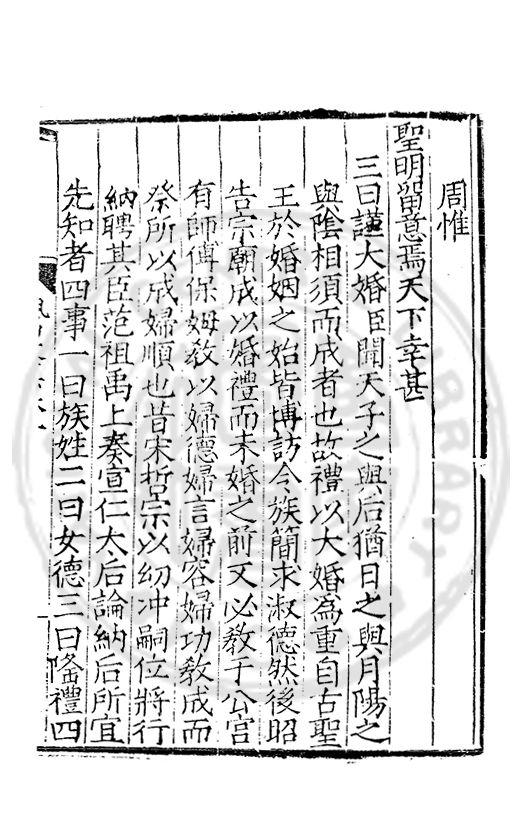 周惟
聖明留意焉天下幸甚
三曰謹大婚臣聞天子之與后猶日之與月陽之
與陰相須而成者也故禮以大婚為重自古聖
王於婚姻之始皆博訪令族簡求淑德然後昭
告宗廟成以婚禮而未婚之前又必教于公宫
有師傅保姆教以婦德婦言婦容婦功教成而
祭所以成婦順也昔宋哲宗以幼冲嗣位將行
納聘其臣范祖禹上奏宣仁太后論納后所宜
先知者四事一曰族姓二曰女德三曰隆禮四